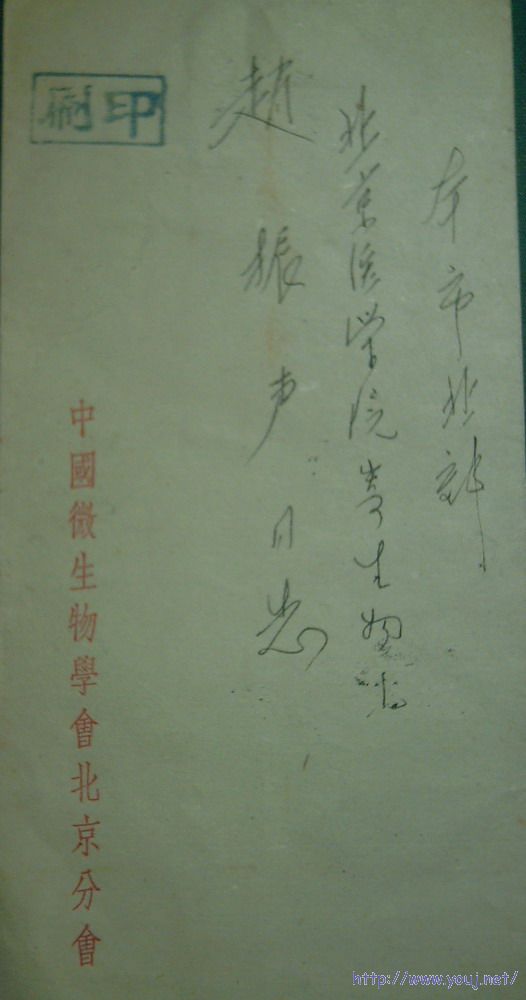 本市北郊
北京医学院寄生物
赵振声同志
印刷
中國微生物學會北京分會
http://www.youj.net/